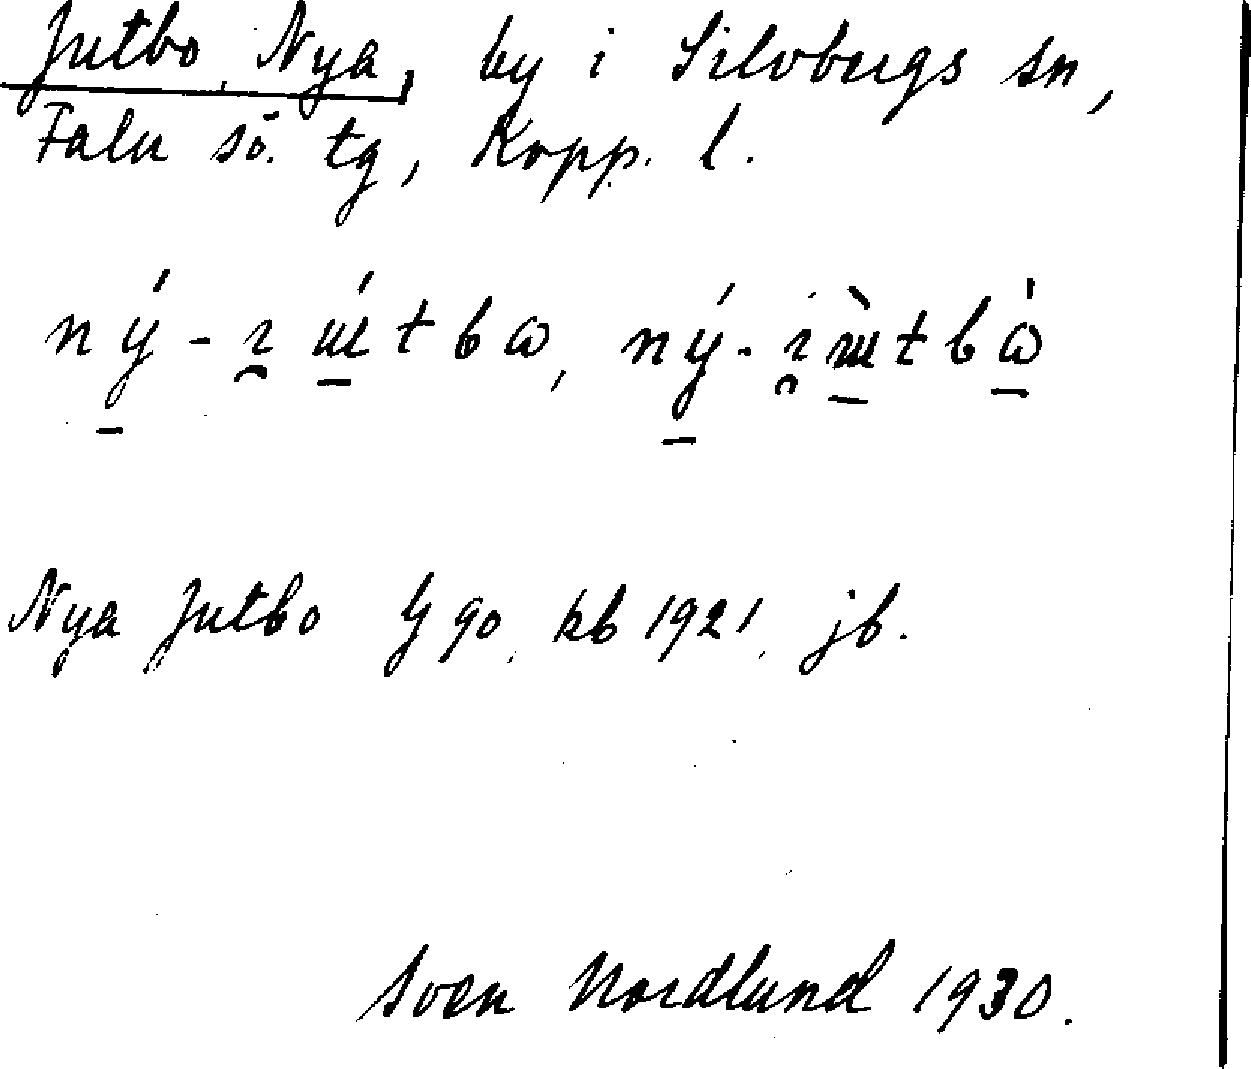 Jutbo, Nya, by i Silvbergs sn,
Falu sö. tg, Kopp. l.
Nya Jutbo G 90, kb 1921, jb.
Sven Nordlund 1930.